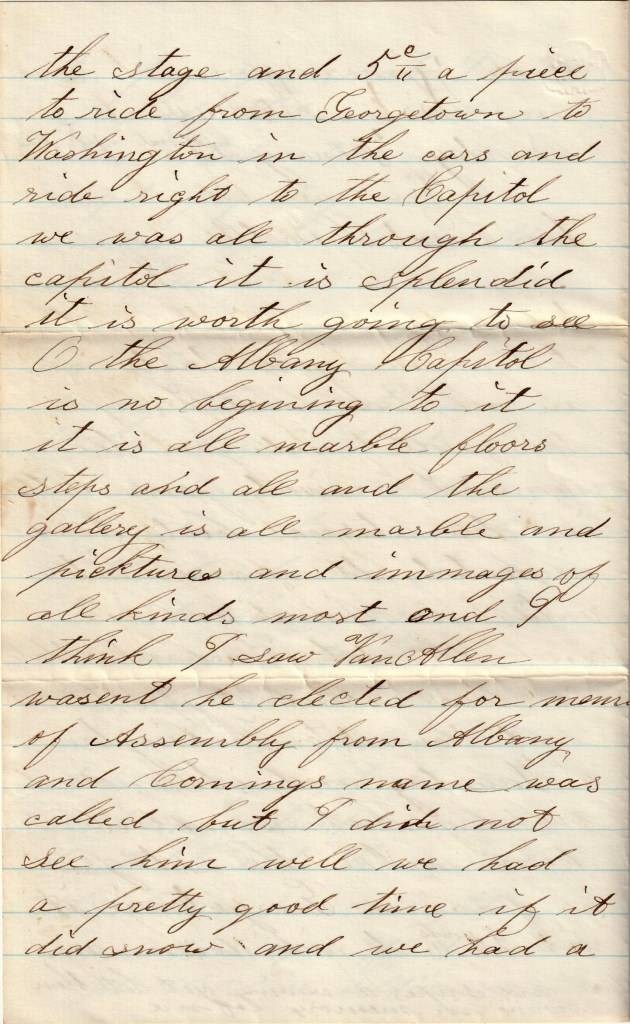 the stage and 5c a piece
to ride from Georgetown to
Washington in the cars and
ride right to the Capitol
we was all through the
capitol it is splendid
it is worth going to see
O the Albany Capitol
is no begining to it
it is all marble floors
steps and all and the
gallery is all marble and
picktures and immages of
all kinds most and I
think I saw VanAllen
wasent he elected for mem
of Assembly from Albany
and Cornings name was
called but I did not
see him well we had
a pretty good time if it
did snow and we had a